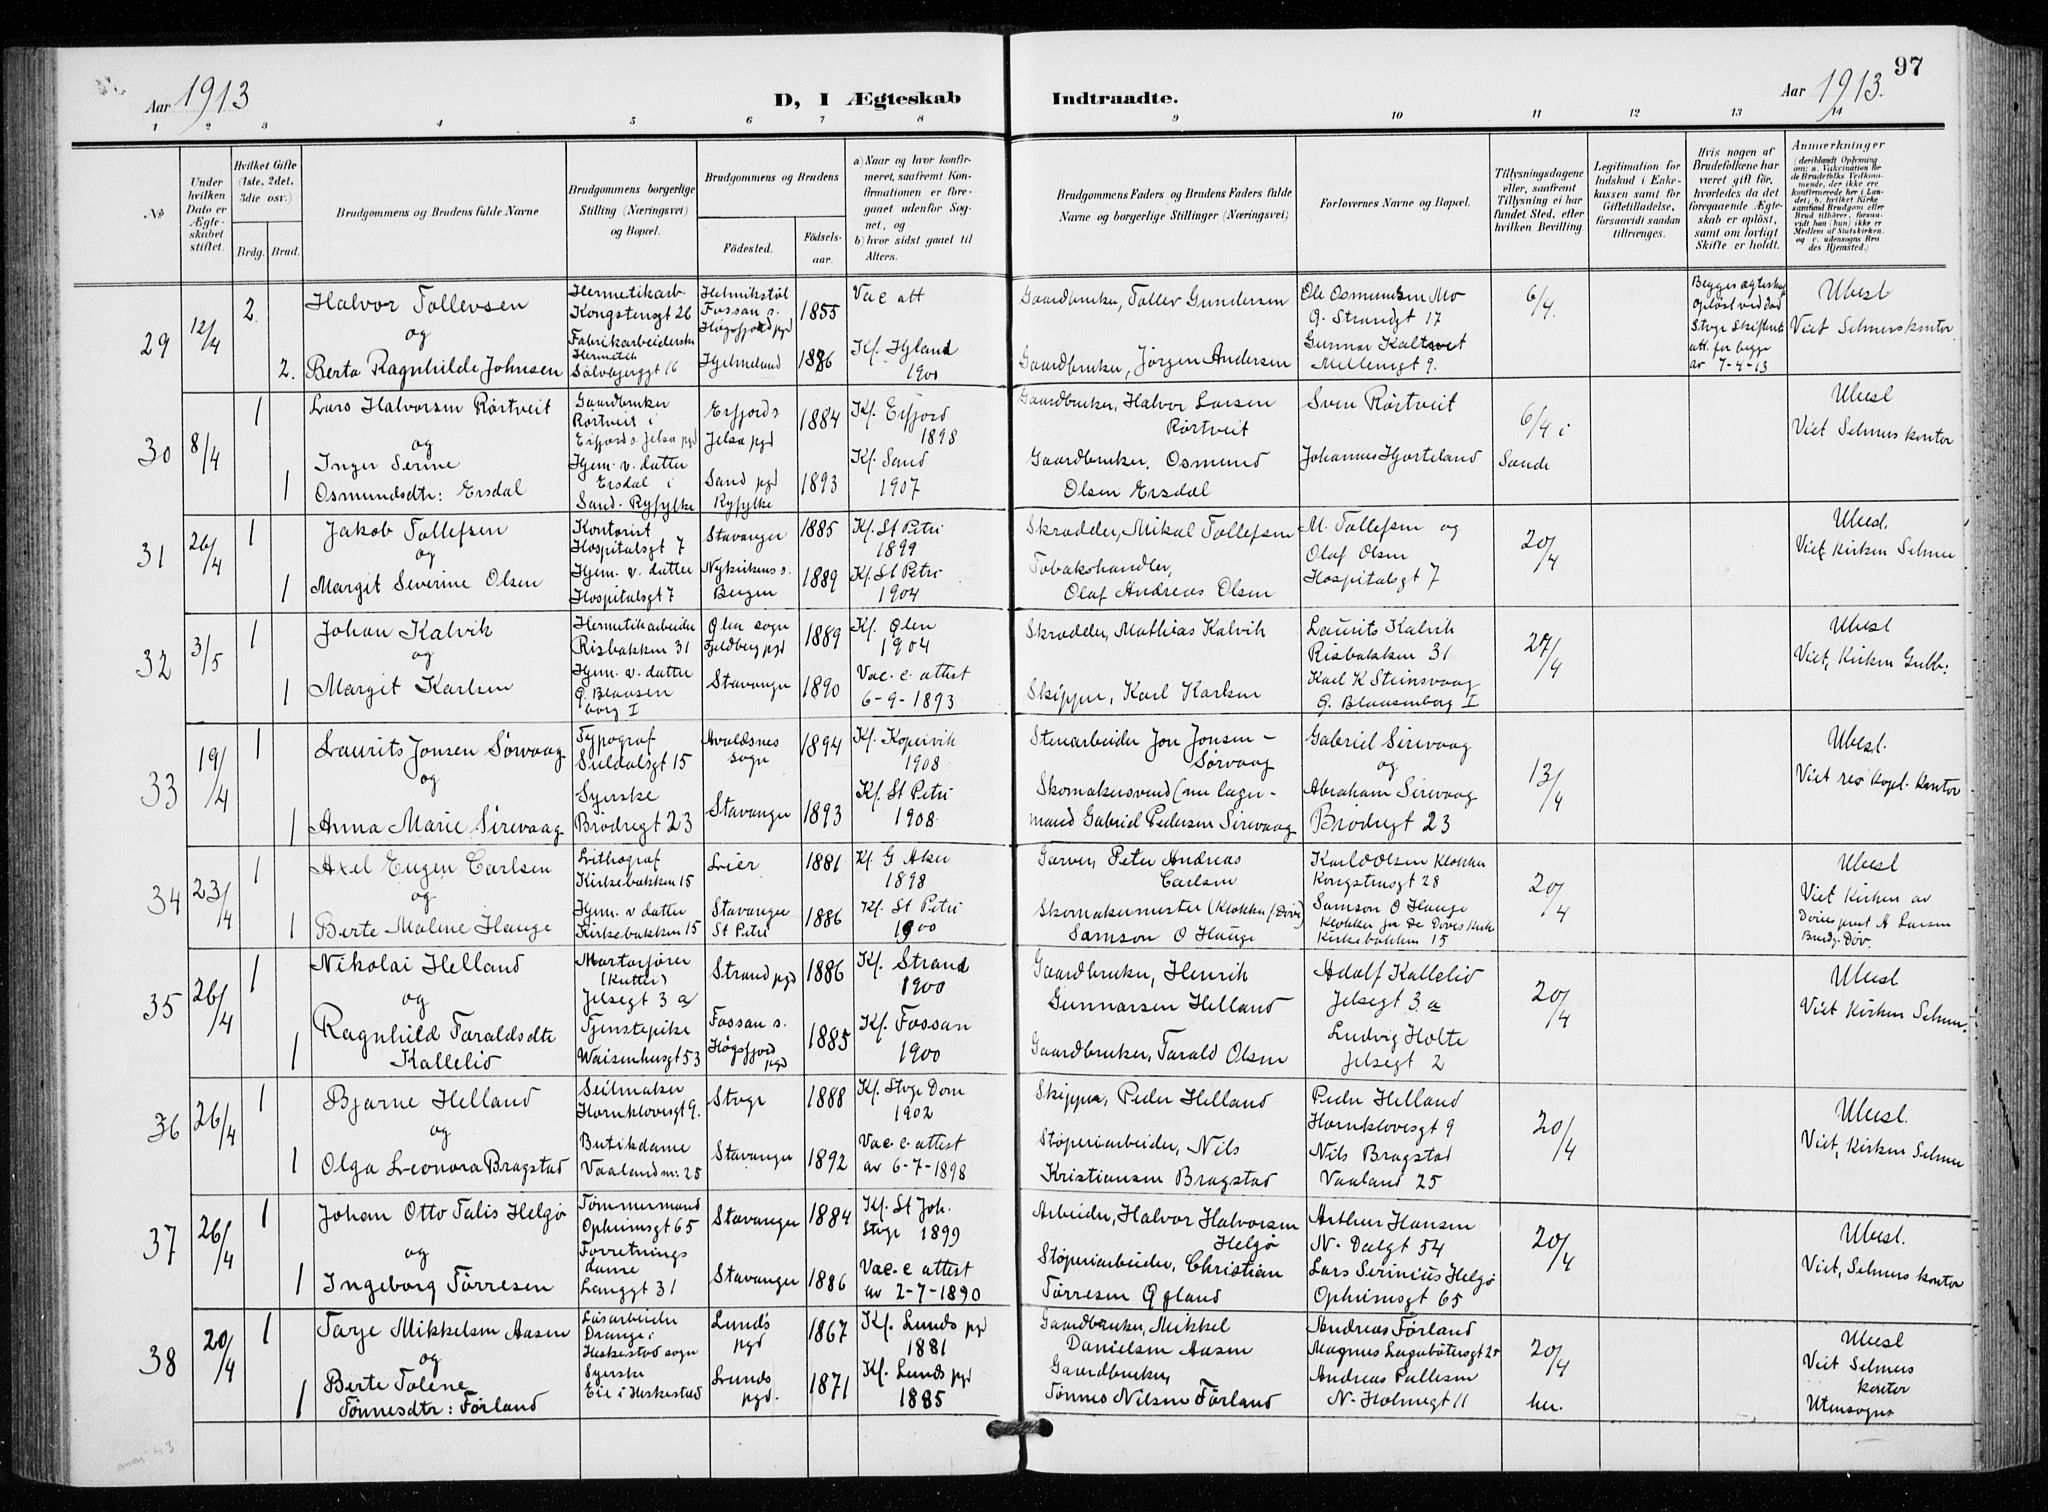 97
Aar 1913
D, I Ægteskab Indtraadte.
Aar 1913.
1 2 3 4 5 6 7 8 9 10 11 12 13 14
No
Under hvilken Dato er Ægteskabet stiftet.
Hvilket Gifte (1ste, 2det, 3die osv.)
Brdg. Brud.
Brudgommens og Brudens fulde Navne
Brudgommens borgerlige Stilling (Næringsvei) og Bopæl.
Brudgommens og Brudens
Fødested.
Fødselsaar.
a) Naar og hvor konfirmeret, saafremt Konfirmationen er foregaaet udenfor Sognet, og
b) hvor sidst gaaet til Alters.
Brudgommens Faders og Brudens Faders fulde Navne og borgerlige Stillinger (Næringsvei)
Forlovernes Navne og Bopæl.
Tillysningsdagene eller, saafremt Tillysning ei har fundet Sted, efter hvilken Bevilling.
Legitimation for Indskud i Enkekassen samt for Giftetilladelse, forsaavidt saadan tiltrænges.
Hvis nogen af Brudefolkene har været gift før, hvorledes da det foregaaende Ægteskab er opløst, samt om lovligt Skifte er holdt.
Anmærkninger
29 12/4 2 Halvor Tollevsen
og
2. Berta Ragnhilde Johnsen
Hermetikarb.
Kongstensgt 26
Fabrikarbeiderske
Hermetik
Sølvbjerggt 16
Helmikstøl
Fossan s.
Høgsfjord pgd
Hjelmeland
1855
1886
Vac att
Kf. Hjland
1900
Gaardbruker, Tollev Gundersen
Gaardbruker, Jörgen Andersen
Ole Osmundsen Mo
Ø. Strandgt 17
Gunnar Kaltveit
Møllengt 9.
6/4.
Begges ægteskab
opløst ved død
Stvgr Skifteret
att. for begge
av 7-4-13
Ubesl
Viet Selmers kontor
30 8/4 1 Lars Halvorsen Rørtveit
og
1 Inger Serine
Osmundsdtr: Ersdal
Gaardbruker
Rørtveit i
Erfjord s. Jelsa pgd
Hjem. v. datter
Ersdal i
Sand. Ryfylke
Erfjord s
Jelsa pgd
Sand pgd
Ryfylke
1884
1893
Kf. Erfjord
1898
Kf. Sand
1907
Gaardbruker, Halvor Larsen
Rørtveit
Gaardbruker, Osmund
Olsen Ersdal
Sven Rørtveit
Johannes Hjorteland
6/4 i
Sande
Ubesl
Viet Selmers kontor
31 26/4 1 Jakob Tollefsen
og
1 Margit Severine Olsen
Kontorist
Hospitalsgt 7
Hjem. v. datter
Hospitalsgt 7
Stavanger
Nykirkens s.
Bergen
1885
1889
Kf. St Petri
1899
Kf. St Petri
1904
Skrædder, Mikal Tollefsen
Tobakshandler,
Olaf Andreas Olsen
M. Tollefsen og
Olaf Olsen
Hospitalsgt 7
20/4
Ubesl.
Viet Kirken Selmer
32 3/5 1 Johan Kalvik
og
1 Margit Karlsen
Hermetikarbeider
Risbakken 31
Hjem. v. datter
Ø. Blaasen
borg I
Ølen sogn
Fjeldberg pgd
Stavanger
1889
1890
Kf. Ølen
1904
Vac. c. attest
6-9-1893
Skrædder, Mathias Kalvik
Skipper, Karl Karlsen
Laurits Kalvik
Risbakken 31
Karl K Steinsvaag
Ø. Blaasenborg I
27/4
Ubesl
Viet, Kirken Gubb:
33 19/4 1 Laurits Jonsen Sørvaag
og
1 Anna Marie Sirevaag
Typograf
Suldalsgt 15
Syerske
Brødregt 23
Avaldsnes
sogn
Stavanger
1894
1893
Kf. Kopervik
1908
Kf. St Petri
1908.
Stenarbeider Jon Jonsen -
Sørvaag
Skomakersvend (nu lager-
mand Gabriel Pedersen Sirevaag
Gabriel Sirevaag
og
Abraham Sirevaag
Brødregt 23
13/4
Ubesl.
Viet res kapel. kontor
34 23/4 1 Axel Eugen Carlsen
og
1 Berte Maline Hauge
Lithograf
Kirkebakken 15
Hjem. v datter
Kirkebakken 15
Lier
Stavanger
St Petri
1881
1886
Kf. G Aker
1898
Kf. St Petri
1900
Garver, Peter Andreas
Carlsen
Skomakermester (Klokker f Døve)
Samson O Hauge
Karl Olsen Klokker
Kongstensgt 28
Samson O Hauge
Klokker for De Døves Kirk
Kirkebakken 15
20/4
Ubesl
Viet Kirken av
Døves prest A Larsen
Brudg. Døv.
35 26/4 1 Nikolai Helland
og
1 Ragnhild Taraldsdtr
Kallelid
Motorfører
(Kutter)
Jelsegt 3 a
Tjenstepike
Waisenhusgt 53
Strand pgd
Fossan s.
Høgsfjord
pgd
1886
1885
Kf. Strand
1900
Kf. Fossan
1900
Gaardbruker, Henrik
Gunnarsen Helland
Gaardbruker, Tarald Olsen
Adolf Kallelid
Jelsegt 3 a
Ludvig Holte
Jelsegt 2
20/4
Ubesl
Viet Kirken Selmer
36 26/4 1 Bjarne Helland
og
1 Olga Leonora Bragstad
Seilmaker
Hornklovesgt 9.
Butikdame
Vaaland nr. 25
Stvgr
Stavanger
1888
1892
Kf. Stvgr Dom
1902
Vac. c attest
av 6-7-1898
Skipper, Peder Helland
Støperiarbeider, Nils
Kristiansen Bragstad
Peder Helland
Hornklovesgt 9
Nils Bragstad
Vaaland 25
20/4
Ubesl.
Viet, Kirken Selmer
37 26/4 1 Johan Otto Talis Helgø
og
1 Ingeborg Tørresen
Tømmermand
Opheimsgt 65
Forretnings
dame
Langgt 31
Stavanger
Stavanger
1884
1886
Kf. St Joh.
Stvgr 1899
Vac. c attest
av 2-7-1890
Arbeider, Halvor Halvorsen
Helgø
Støperiarbeider, Christian
Tørresen Øgland
Arthur Hansen
N. Dalgt 54
Lars Serinius Helgø
Opheimsgt 65
20/4
Ubesl.
Viet, Selmers kontor
38 20/4 1 Tarje Mikkelsen Aasen
og
1 Berte Tolene
Tønnesdtr: Førland
Løsarbeider
Drange i
Heskestad sogn
Syerske
Eie i Heskestad
Lunds
pgd
Lunds
pgd.
1867
1871
Kf. Lunds pgd
1881
Kf. Lunds pgd
1885
Gaardbruker, Mikkel
Danielsen Aasen
Gaardbruker,
Tønnes Nilsen Førland
Andreas Førland
Magnus Lagabøtersgt 20
Andreas Pallesen
N. Holmegt 11
20/4
her.
Ubesl
Viet Selmers
kontor
Utensogns